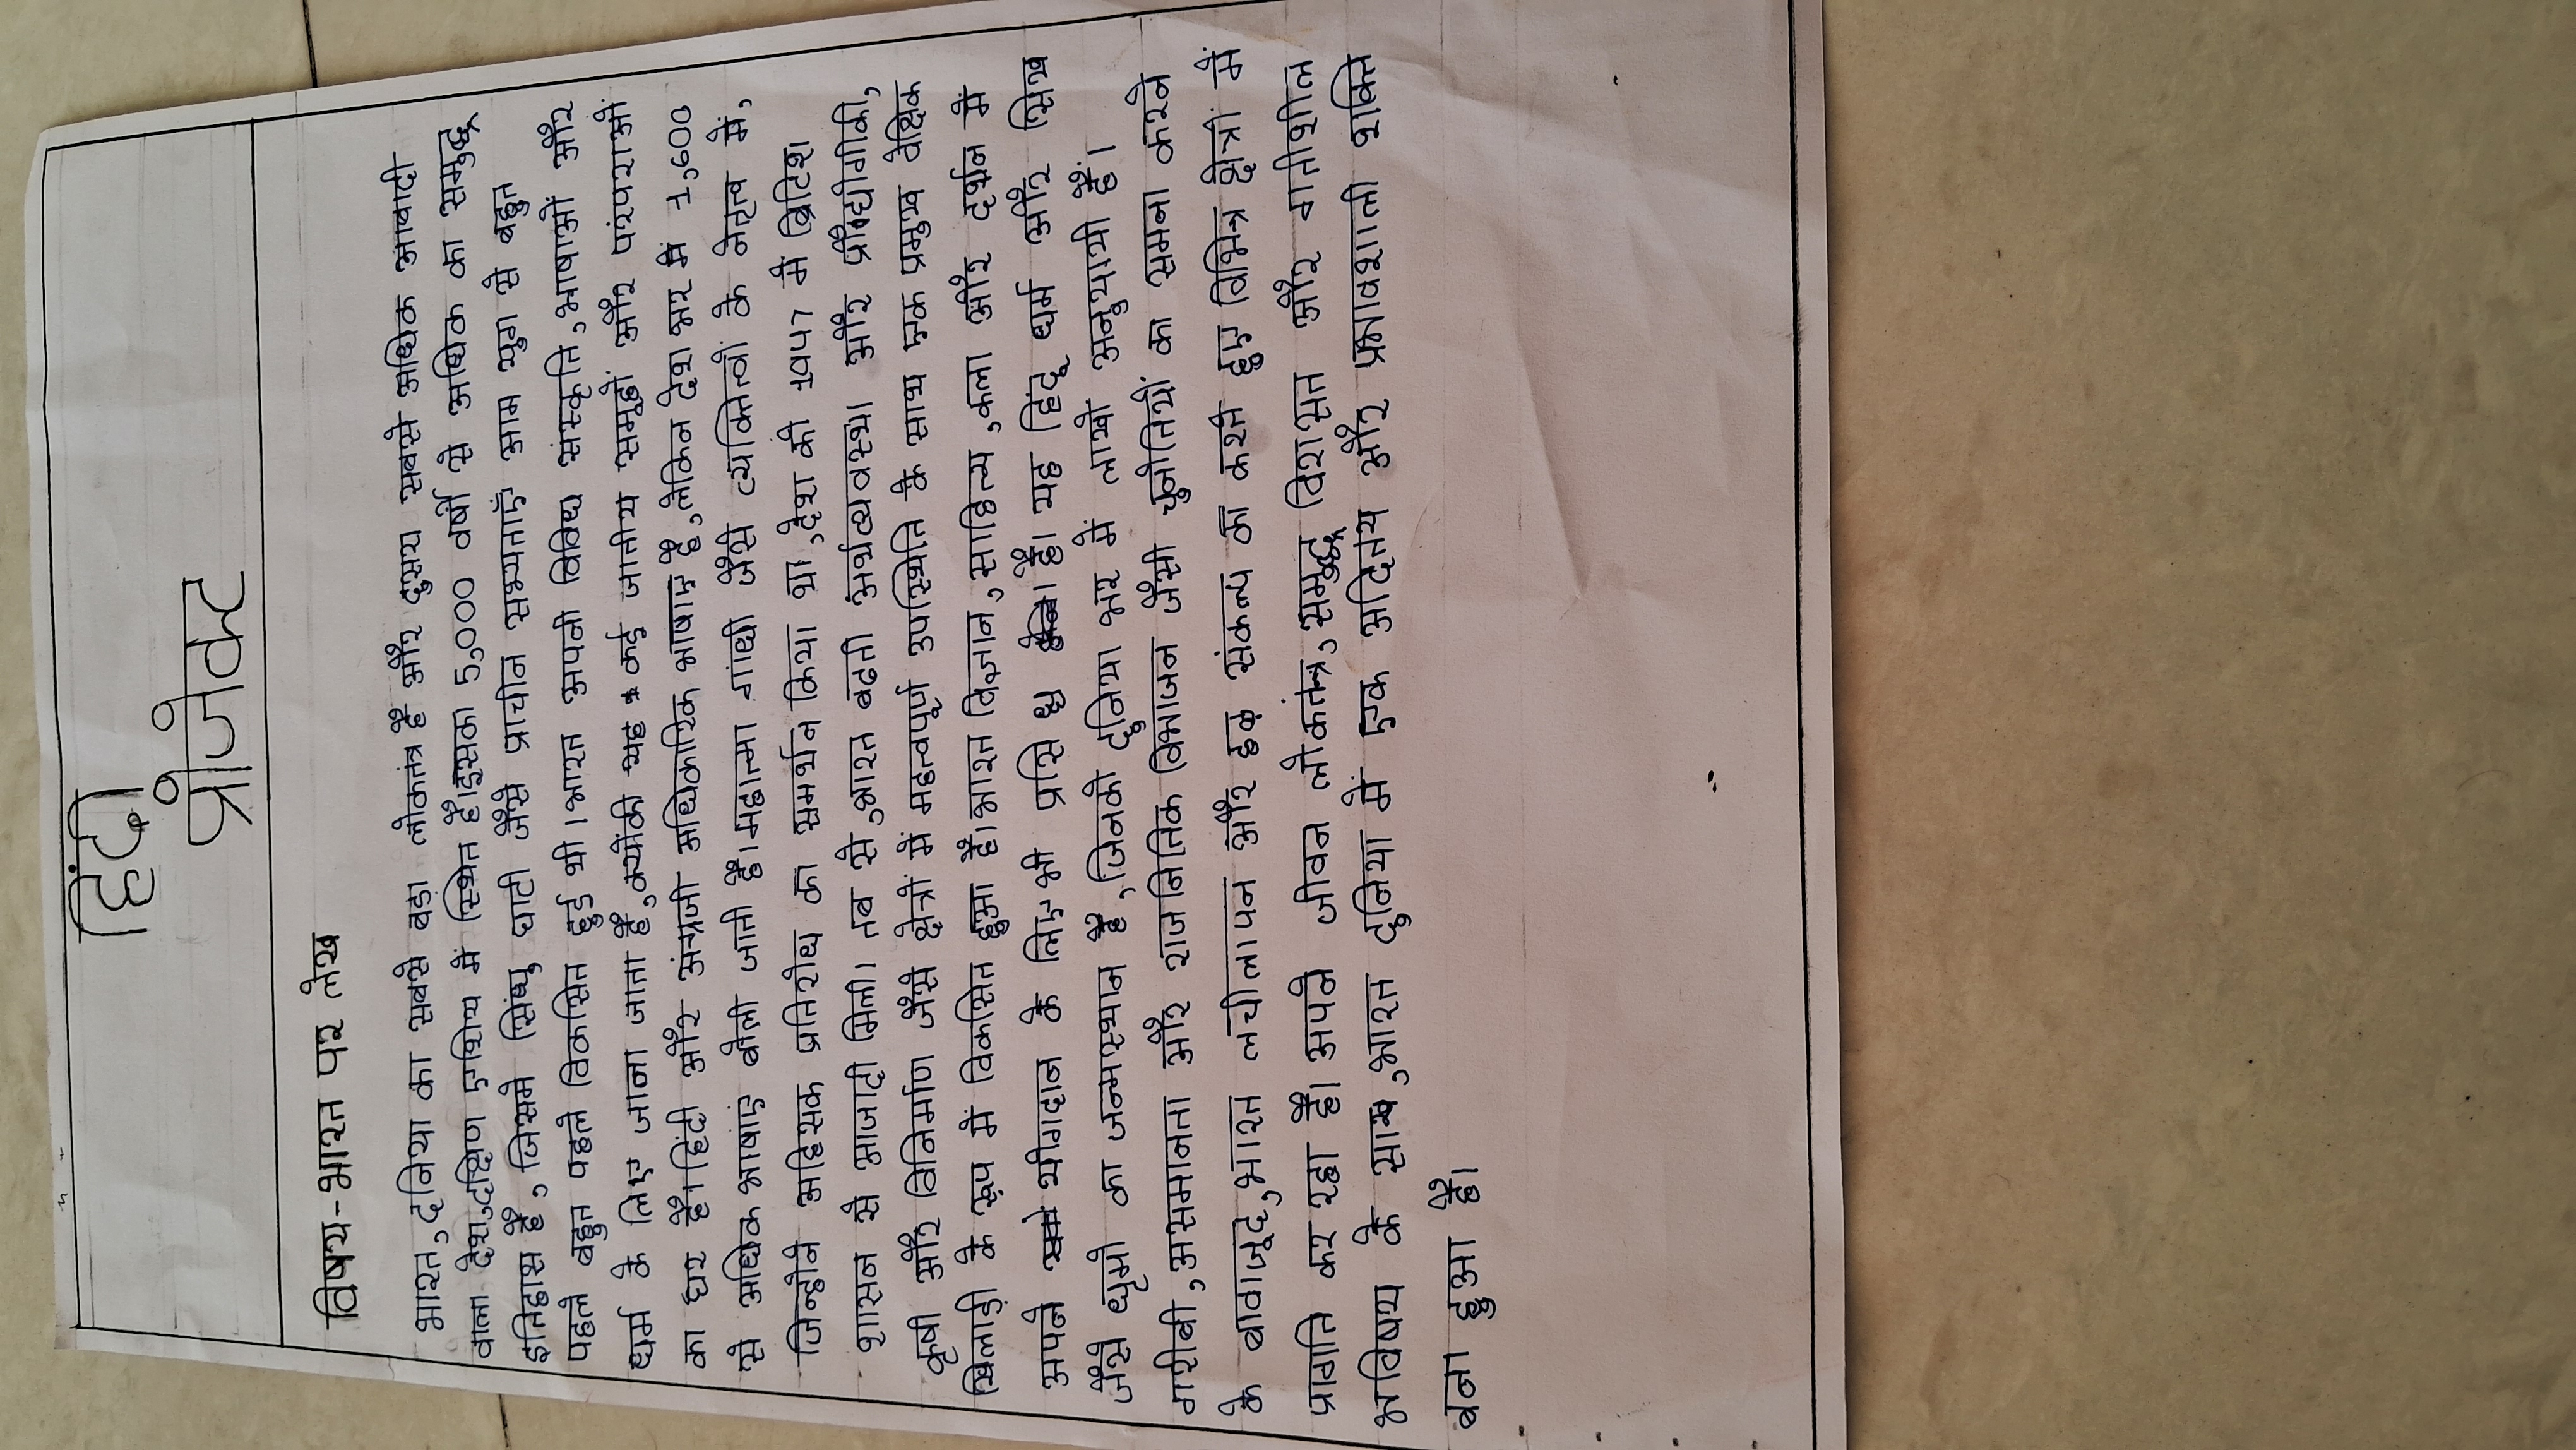 हिंदी
प्रोजेक्ट
विषय-भारत पर लेख
भारत, दनिया का सबसे बड़ा लोकतंत्र है और दुसरा सबसे अधिक आबादी
वाला देश,दक्षिण एशिय में स्थित है।इसका 5,000 वर्षों से अधिक का समुद्ध
इतिहास है, जिसमे सिंधु घाटी जैसे प्राचीन सभ्यताएँ आम युग से बहुत
पहले बहुत पहले विकसित हुई थी। भारत अपनी विविध संस्कृति, भाषाओं और
धर्म के लिए जाना जाता है, क्योंकी यह कई जातीय समूहों और परंपराओं
का घर है। हिंदी और अंग्रजी अधिकारिक भाषाए है, लेकिन देश भर में 1,600
से अधिक भाषाएं बोली जाती है। महात्मा गांधी जैसे व्यक्तित्वों के नेतृत्व में,
जिन्होने अहिसक प्रतिरोध का समर्थन किया था, देश को 1947 में ब्रिटिश
शासन से आजादी मिली। तब से, भारत बढती अर्थव्यवस्था और प्रौद्योगीकी,
कृषी और विनिर्माण जैसे क्षेत्रों में महत्वपूर्ण उपस्थिति के साथ एक प्रमुख वेक्षिक
खिलाड़ी के रूप में विकसित हुआ है। भारत विज्ञान, साहित्य, कला और दर्शन में
अपने योगदान के लिए भी प्रसिध है। यह हिंदू धर्म और सिख
जैसे धृमो का जन्मस्थान है, जिनको दुनिया भर में लाखो अनुयायी हैं।
गरीबी, असमानता और राजनितिक विभाजन जैसी चुनोतियों का समना करने
के बावाजूद, भारत लचीलापन और संकल्प का करते हुए विभिन्न क्षेत्रों में
प्रागति कर रहा है। अपने जीवन लोकतंत्र, समुद्ध विरासत और गतीशील
भविषय के साथ, भारत दुनिया में एक अदितय और प्रभावशाली शक्ति
बना हुआ है।